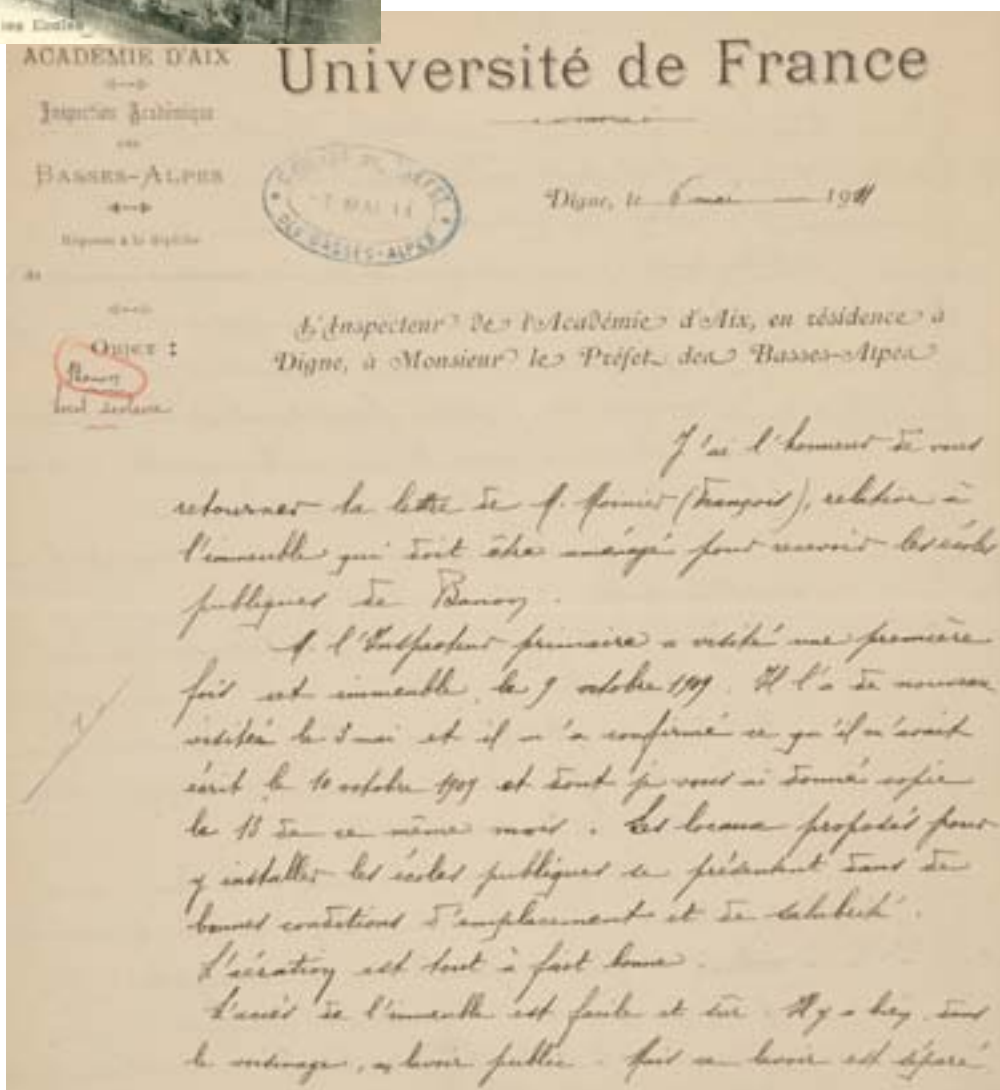 Ecoles
ACADÉMIE D'AIX
Inspection Académique
DES
BASSES-ALPES
Réponse à la dépêche
du
OBJET :
Banon
local scolaire
Université de France
DES BASSES-ALPES
Digne, le 6 mai 1911
L'Inspecteur de l'Académie d'Aix, en résidence à
Digne, à Monsieur le Préfet des Basses-Alpes
J'ai l'honneur de vous
retourner la lettre de M. Monier (François), relative à
l'immeuble qui doit être aménagé pour recevoir les écoles
publiques de Banon.
M. l'Inspecteur primaire a visité une première
fois cet immeuble le 9 octobre 1909. Il l'a de nouveau
visité le 3 mai et il m'a confirmé ce qu'il m'avait
écrit le 10 octobre 1909 et dont je vous ai donné copie
le 13 de ce même mois. Les locaux proposés pour
y installer les écoles publiques se présentent dans de
bonnes conditions d'emplacement et de salubrité.
L'aération est tout à fait bonne.
L'accès de l'immeuble est facile et sûr. Il y a bien, dans
le voisinage, un lavoir public. Mais ce lavoir est séparé